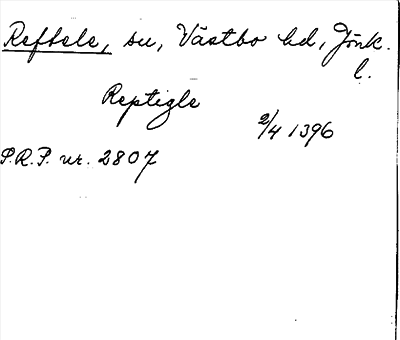 Reftele, sn, Västbo hd, Jönk.
l.
Reptigle
2/4 1396
P.R.P. nr. 2807